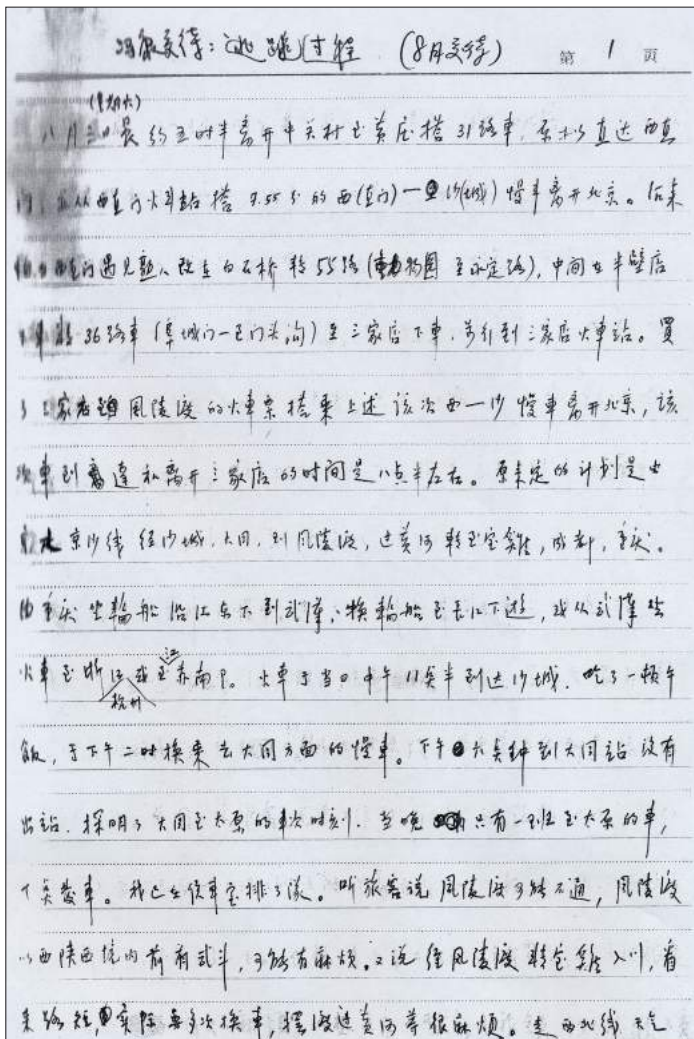 交待：逃跑过程 (8月交待) 第 1 页
(星期六)
八月三日晨约五时半离开中关村至黄庄搭31路車，原拟直达西直
门，从西直门火車站搭7.55分的西(直门)一沙(城)慢車离开北京。后来
西直门遇见熟人改在白石桥转55路(動物园至永定路)，中间在半壁店
36路車(阜城门一门头沟)至三家店下車，步行到三家店火車站。買
了三家店到風陵渡的火車票搭乘上述该次西一沙慢車离开北京，该
次車到达和离开三家店的时间是八点半左右。原来定的计划是由
京沙线经沙城，大同，到風陵渡，过黄河转至宝雞，成都，重庆。
由重庆坐輪船沿江东下到武漢，换輪船至長江下游，或从武漢坐
火車至浙江或至江苏南P。火車于当日中午11点半到达沙城，吃了一顿午
杭州
飯，于下午二时换乘去大同方面的慢車。下午六点钟到大同站没有
出站，探明了大同至太原的車次时刻，当晚只有一班至太原的車，
个点發車。我已在侯車室排了隊。听旅客说風陵渡可能不通，風陵渡
以西陕西境内前有武斗，可能有麻烦。又说经風陵渡转宝雞入川，看
来路短，实际要多次换車，摆渡过黄河等很麻烦。走西北线天气